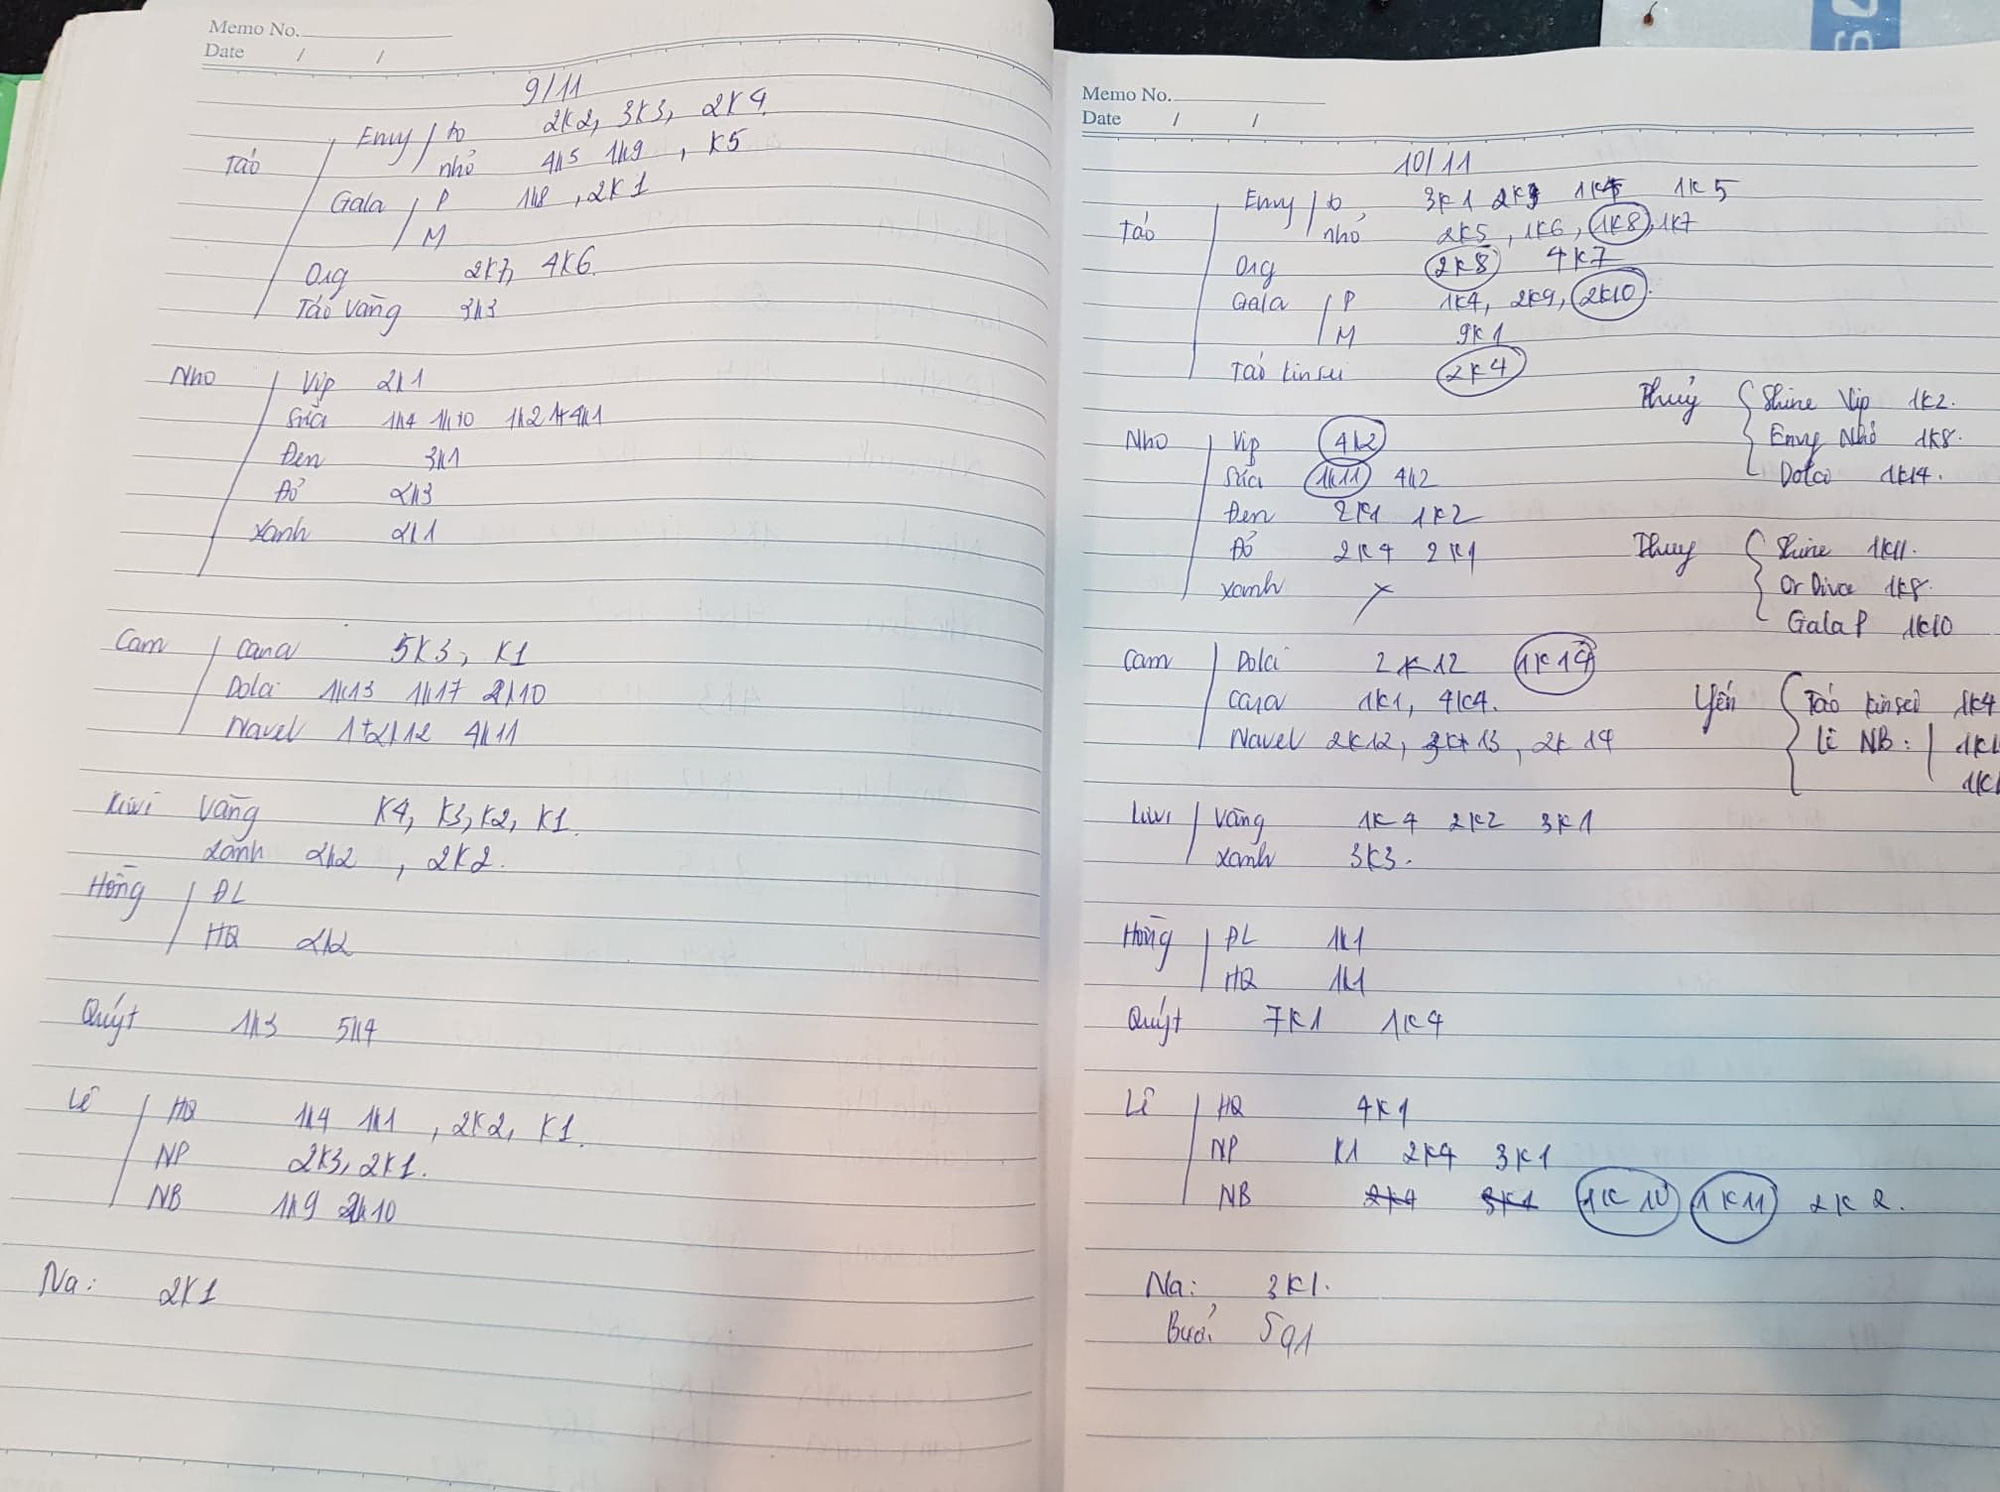 Memo No.
Date / /
9/11
Táo Envy to 2K2, 3K3, 2K4
nhỏ 4K5 1K9, K5
Gala P 1K8, 2K1
M
Org 2K7, 4K6
Táo Vàng 3K3
Nho Vip 2K1
Sữa 1K4 1K10 1K2 1+4K1
Đen 3K1
Đỏ 2K3
Xanh 2K1
Cam Cara 5K3, K1
Dolci 1K13 1K17 2K10
Navel 1+2K12 4K11
Kiwi Vàng K4, K3, K2, K1.
Xanh 2K2, 2K2.
Hồng ĐL
HQ 2K2
Quýt 1K3 5K4
Lê HQ 1K4 1K1, 2K2, K1.
NP 2K3, 2K1.
NB 1K9 2K10
Na: 2K1
Memo No.
Date / /
10/11
Táo Envy to 3K1 2K3 1K4 1K5
nhỏ 2K5, 1K6, 1K8, 1K7
Org 2K8 4K7
Gala P 1K4, 2K9, 2K10.
M 9K1
Táo kinsei 2K4
Thuỷ Shine Vip 1K2.
Envy Nhỏ 1K8.
Dolci 1K14.
Nho Vip 4K2
Sữa 1K11 4K2
Đen 2K1 1K2
Đỏ 2K4 2K1
Xanh X
Thuy Shine 1K11.
Or Diva 1K8.
Gala P 1K10
Cam Dolci 2K12 1K14
Cara 1K1, 4K4.
Navel 2K12, 13, 2K14
Yến Táo kinsei 1K4
Lê NB: 1K1
1K1
Kiwi Vàng 1K4 2K2 3K1
Xanh 3K3.
Hồng ĐL 1K1
HQ 1K1
Quýt 7K1 1K4
Lê HQ 4K1
NP K1 2K4 3K1
NB 2K4 3K1 1K10 1K11 2K2.
Na: 3K1.
Bưởi 5q1